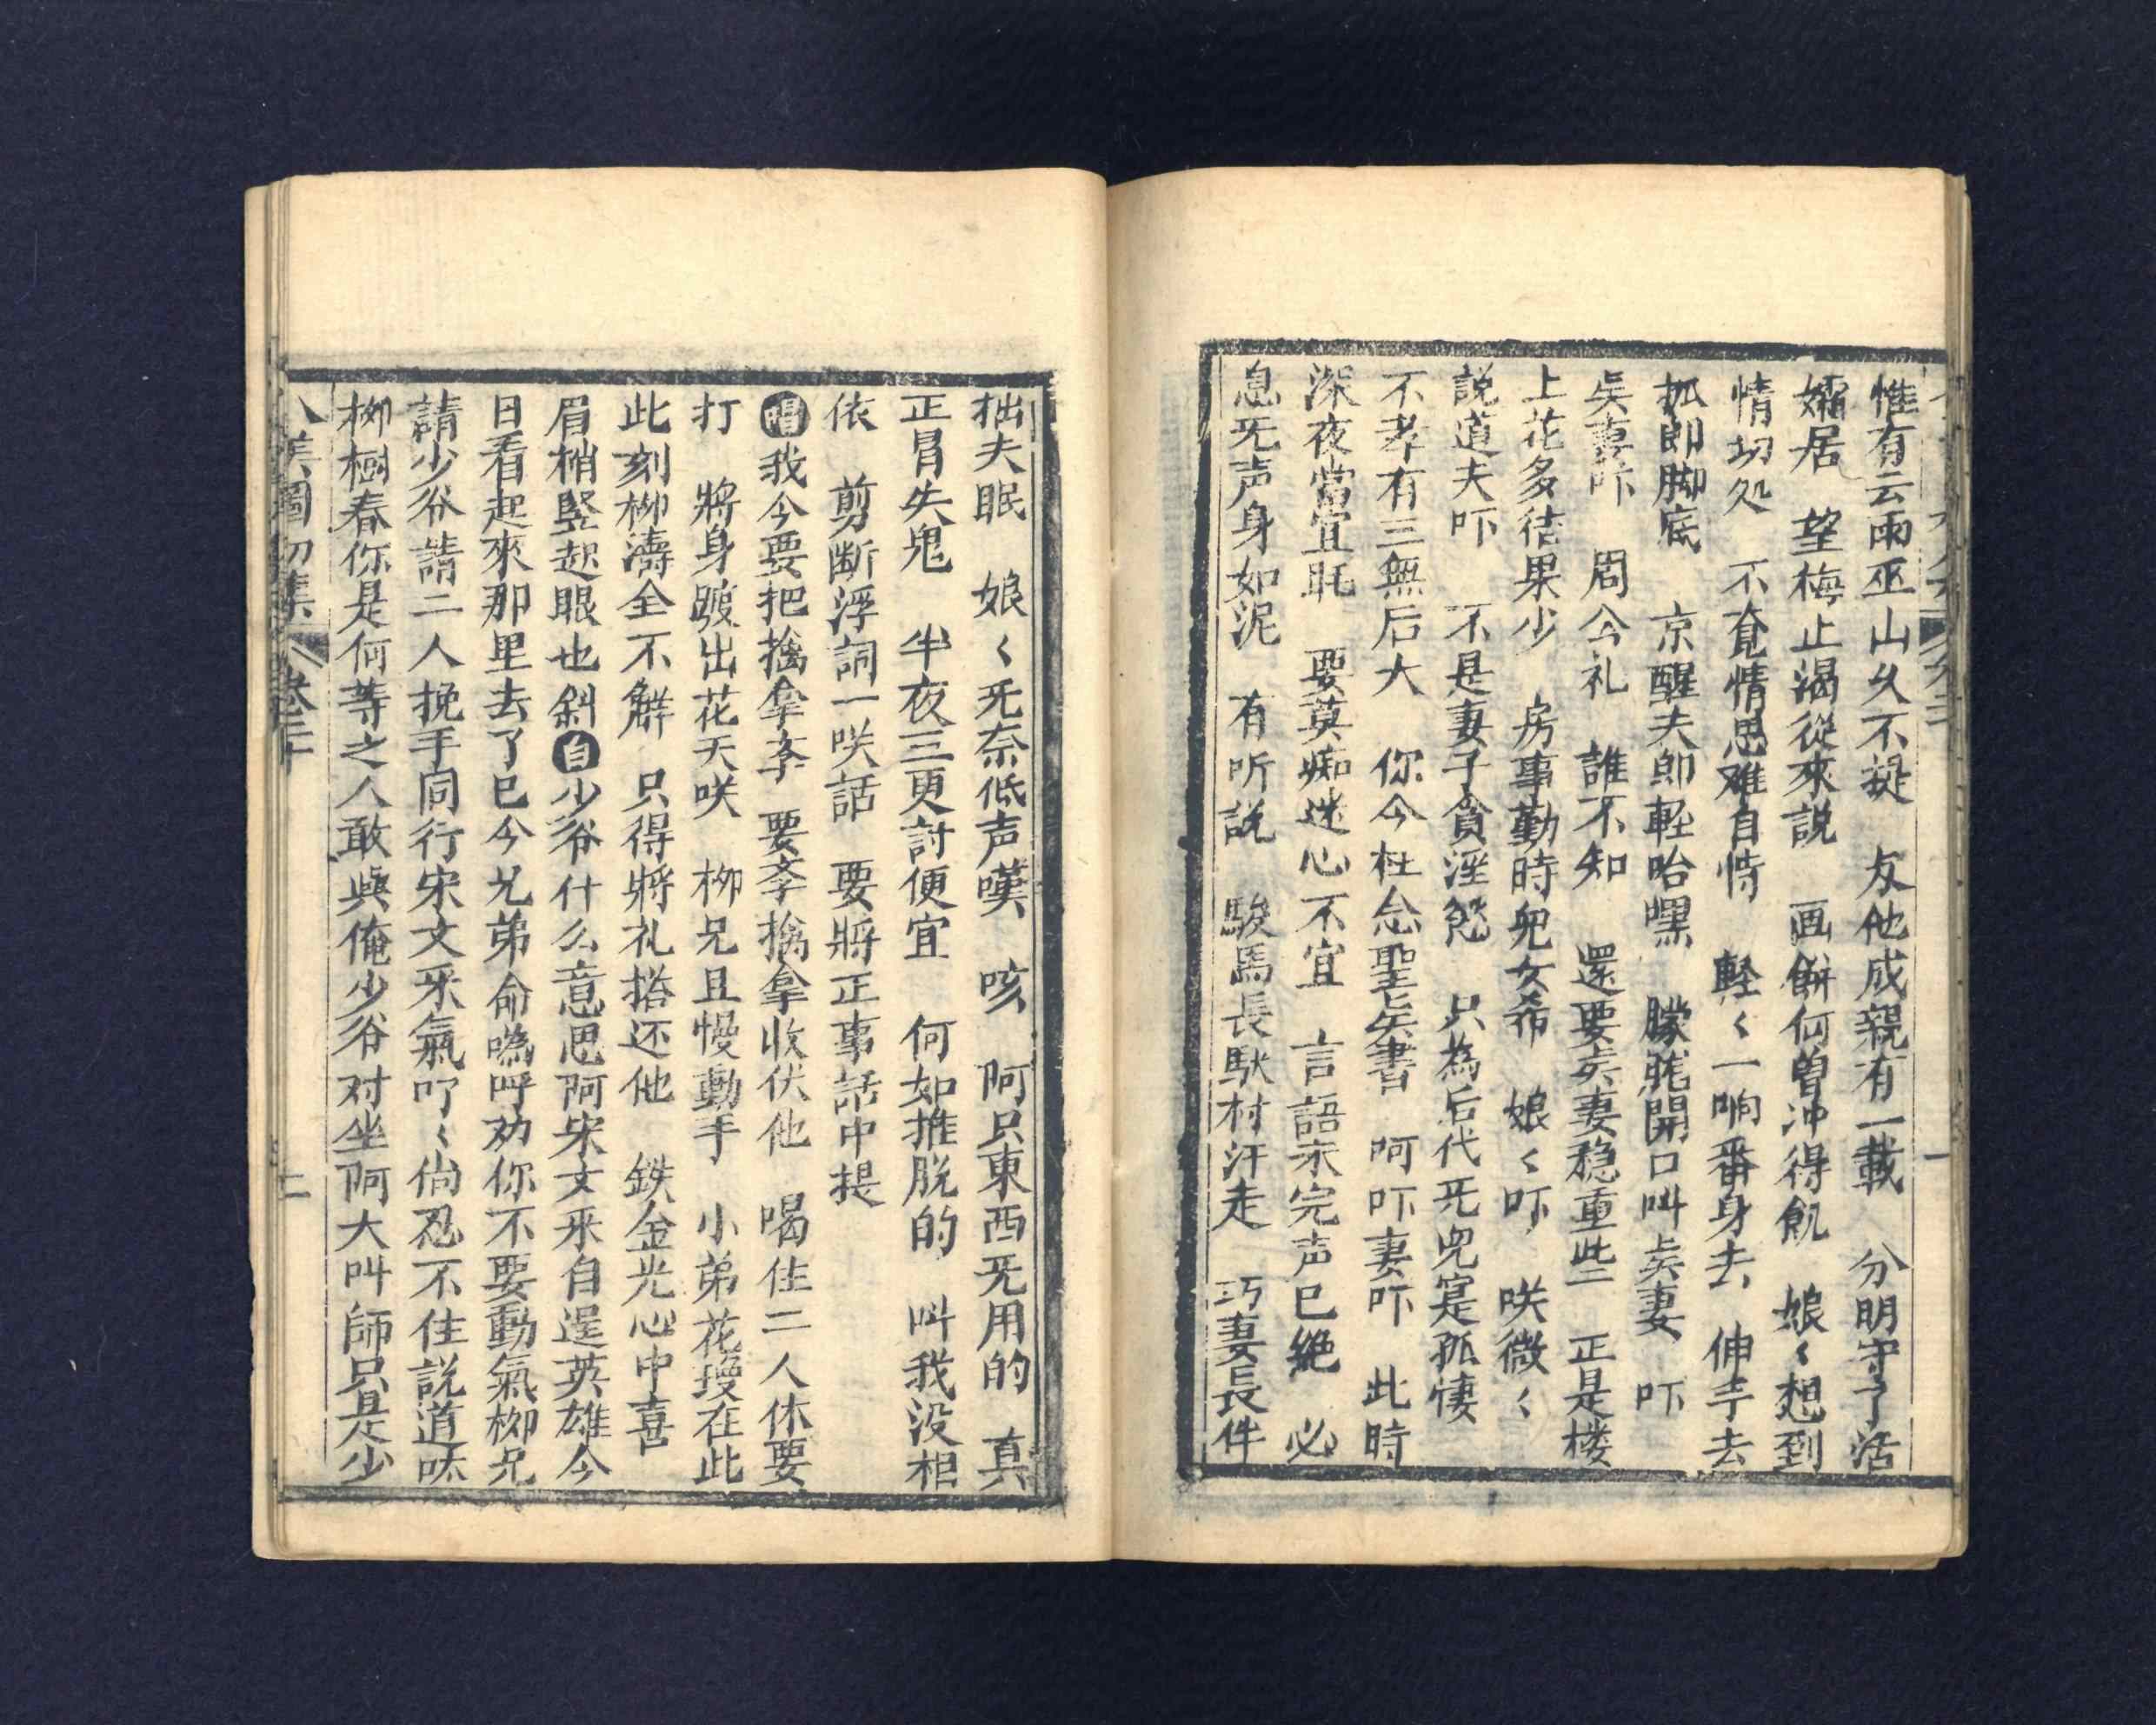 惟有云雨巫山久不提　友他成親有一載　分明守了活
孀居　望梅止渴從來説　画餅何曾冲得飢　娘〱想到
情切処　不覚情思难自恃　軽〱一响番身去　伸手去
抓郎脚底　京醒夫郎軽咍嘿　朦朧開口叫矣妻　吓
矣妻吓　周公礼　誰不知　還要矣妻稳重些　正是楼
上花多结果少　房事勤時兒女希　娘〱吓　咲微〱
説道夫吓　不是妻子貪淫慾　只為后代旡兒寔孤悽
不孝有三無后大　你今枉念聖矣書　阿吓妻吓　此時
深夜當宜眊　要莫痴迷心不宜　言語未完声已絶　必
息旡声身如泥　有听説　駿馬長馱村汗走　巧妻長伴
拙夫眠　娘〱旡奈低声嘆　咳　阿只東西旡用的　真
正冒失鬼　半夜三更討便宜　何如推脱的　叫我没相
依　剪断浮詞一咲話　要將正事話中提
唱我今要把擒拿李　要李擒拿收伏他　喝住二人休要
打　將身蹬出花天咲　柳兄且慢動手　小弟花瓊在此
此刻柳濤全不觧　只得將礼搭还他　鉄金光心中喜
眉梢竪起眼也斜　白少爷什么意思阿宋文采自逞英雄今
日看起來那里去了巳今兄弟命嗚呼劝你不要動氣柳兄
請少爷請二人挽手同行宋文采氣吖〱尚忍不住説道呔
柳樹春你是何等之人敢與俺少爷对坐阿大叫師只是少
八美圖初集　卷二十　二